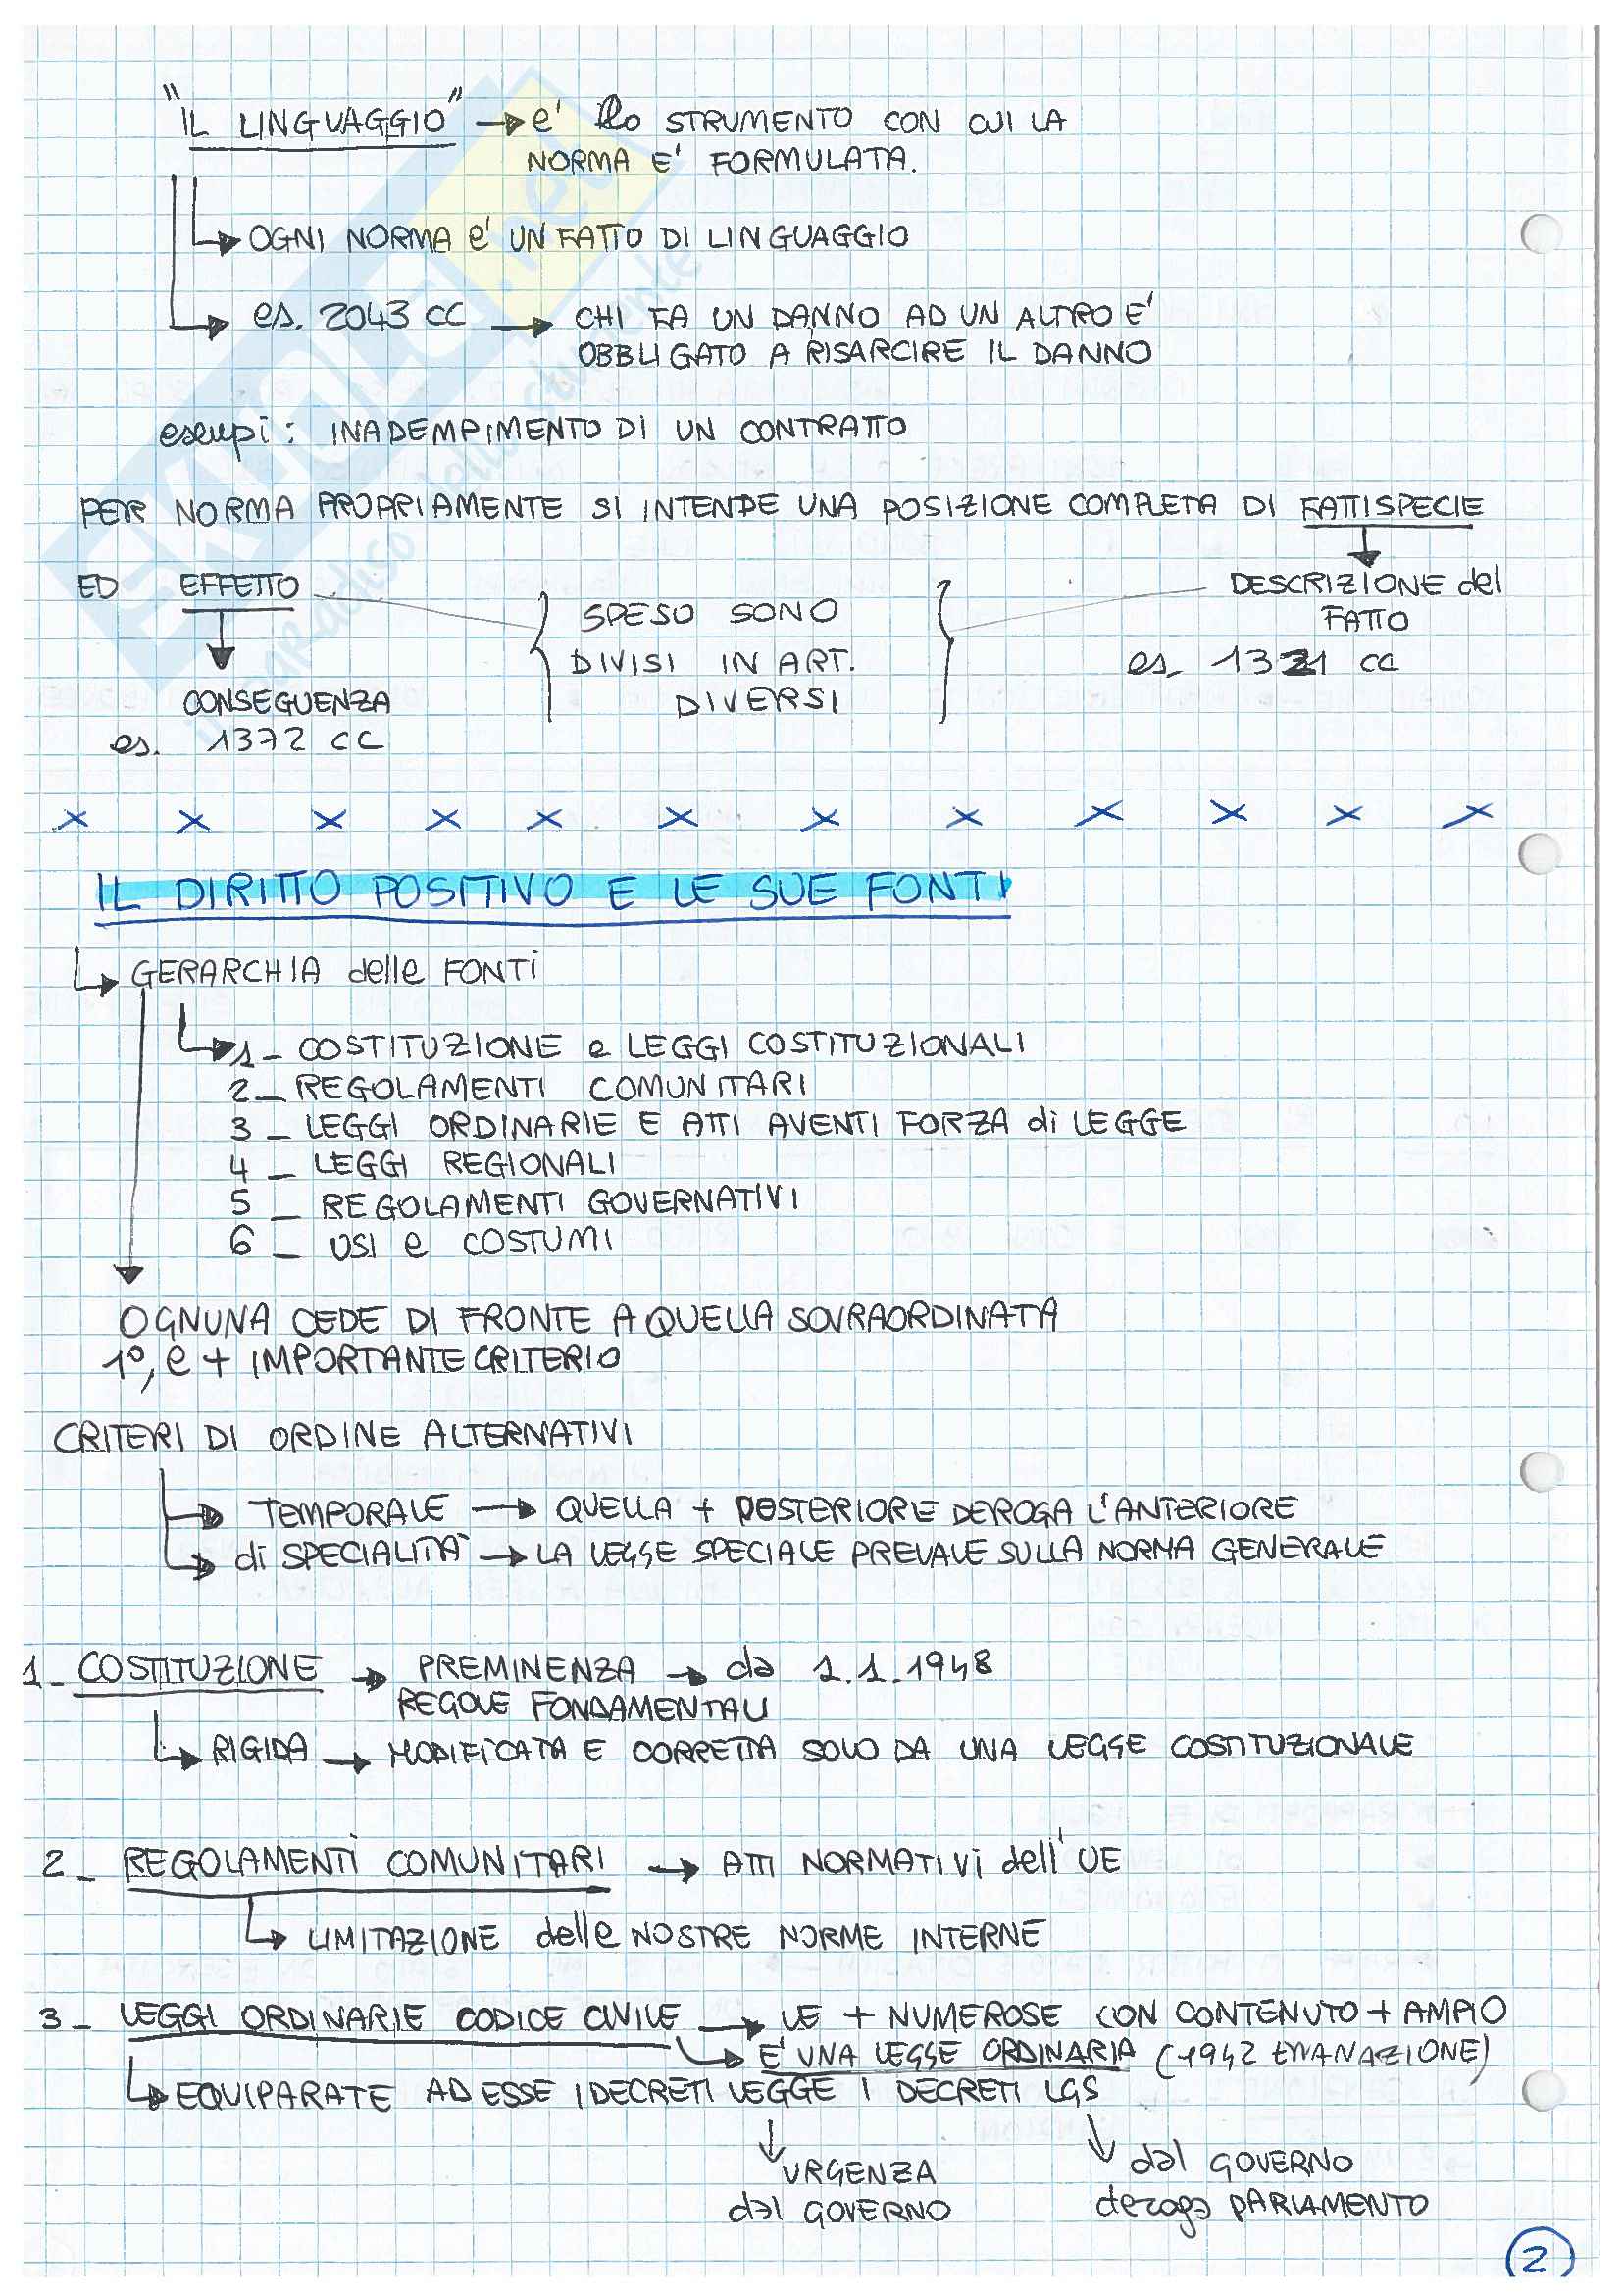 "IL LINGUAGGIO" → e' lo STRUMENTO CON CUI LA
NORMA E' FORMULATA.
↳ OGNI NORMA e' UN FATTO DI LINGUAGGIO
↳ es. 2043 CC → CHI FA UN DANNO AD UN ALTRO E'
OBBLIGATO A RISARCIRE IL DANNO
esempi: INADEMPIMENTO DI UN CONTRATTO
PER NORMA PROPRIAMENTE SI INTENDE UNA POSIZIONE COMPLETA DI FATTISPECIE
ED EFFETTO
SPESO SONO
DIVISI IN ART.
DIVERSI
DESCRIZIONE del
FATTO
es. 1321 CC
CONSEGUENZA
es. 1372 CC
x x x x x x x x x x x x
IL DIRITTO POSITIVO E LE SUE FONTI
↳ GERARCHIA delle FONTI
↳ 1_ COSTITUZIONE e LEGGI COSTITUZIONALI
2_ REGOLAMENTI COMUNITARI
3_ LEGGI ORDINARIE E ATTI AVENTI FORZA di LEGGE
4_ LEGGI REGIONALI
5_ REGOLAMENTI GOVERNATIVI
6_ USI e COSTUMI
OGNUNA CEDE DI FRONTE A QUELLA SOVRAORDINATA
1°, e + IMPORTANTE CRITERIO
CRITERI DI ORDINE ALTERNATIVI
↳ TEMPORALE → QUELLA + POSTERIORE DEROGA L'ANTERIORE
↳ di SPECIALITÀ → LA LEGGE SPECIALE PREVALE SULLA NORMA GENERALE
1_ COSTITUZIONE → PREMINENZA → da 1.1.1948
REGOLE FONDAMENTALI
↳ RIGIDA → MODIFICATA E CORRETTA SOLO DA UNA LEGGE COSTITUZIONALE
2_ REGOLAMENTI COMUNITARI → ATTI NORMATIVI dell'UE
↳ LIMITAZIONE delle NOSTRE NORME INTERNE
3_ LEGGI ORDINARIE CODICE CIVILE → LE + NUMEROSE CON CONTENUTO + AMPIO
↳ E' UNA LEGGE ORDINARIA (1942 EMANAZIONE)
↳ EQUIPARATE AD ESSE I DECRETI LEGGE I DECRETI LGS
↓ URGENZA
dal GOVERNO
↓ dal GOVERNO
deroga PARLAMENTO
2